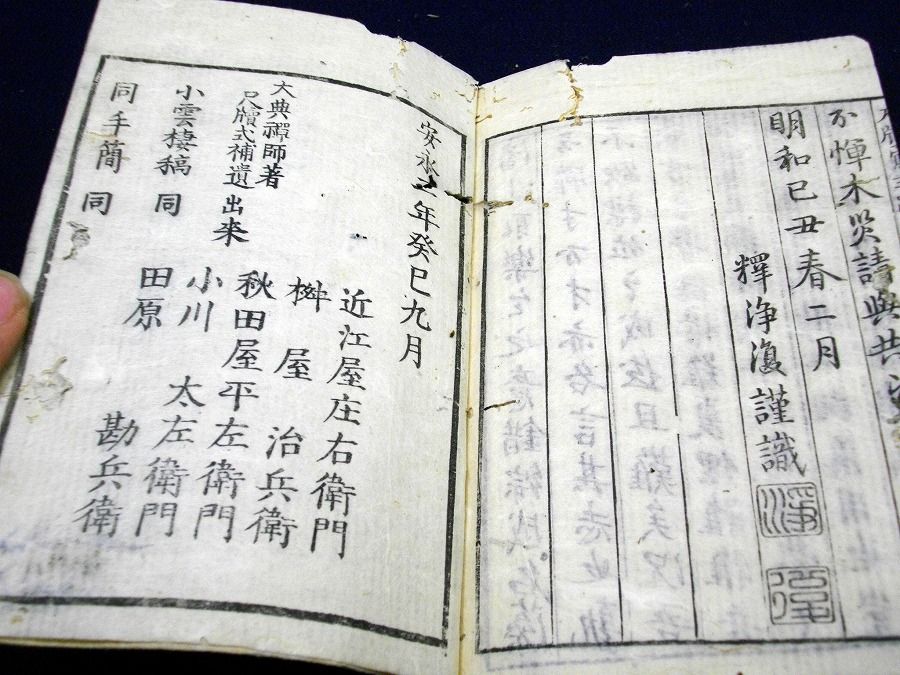 不憚木災請與共
明和己丑春二月
釋浄復謹識
安永二年癸巳九月
大典禪師著
尺牘式補遺 出来
小雲棲稿 同
同手簡 同
近江屋庄右衛門
桝屋 治兵衛
秋田屋平左衛門
小川 太左衛門
田原 勘兵衛